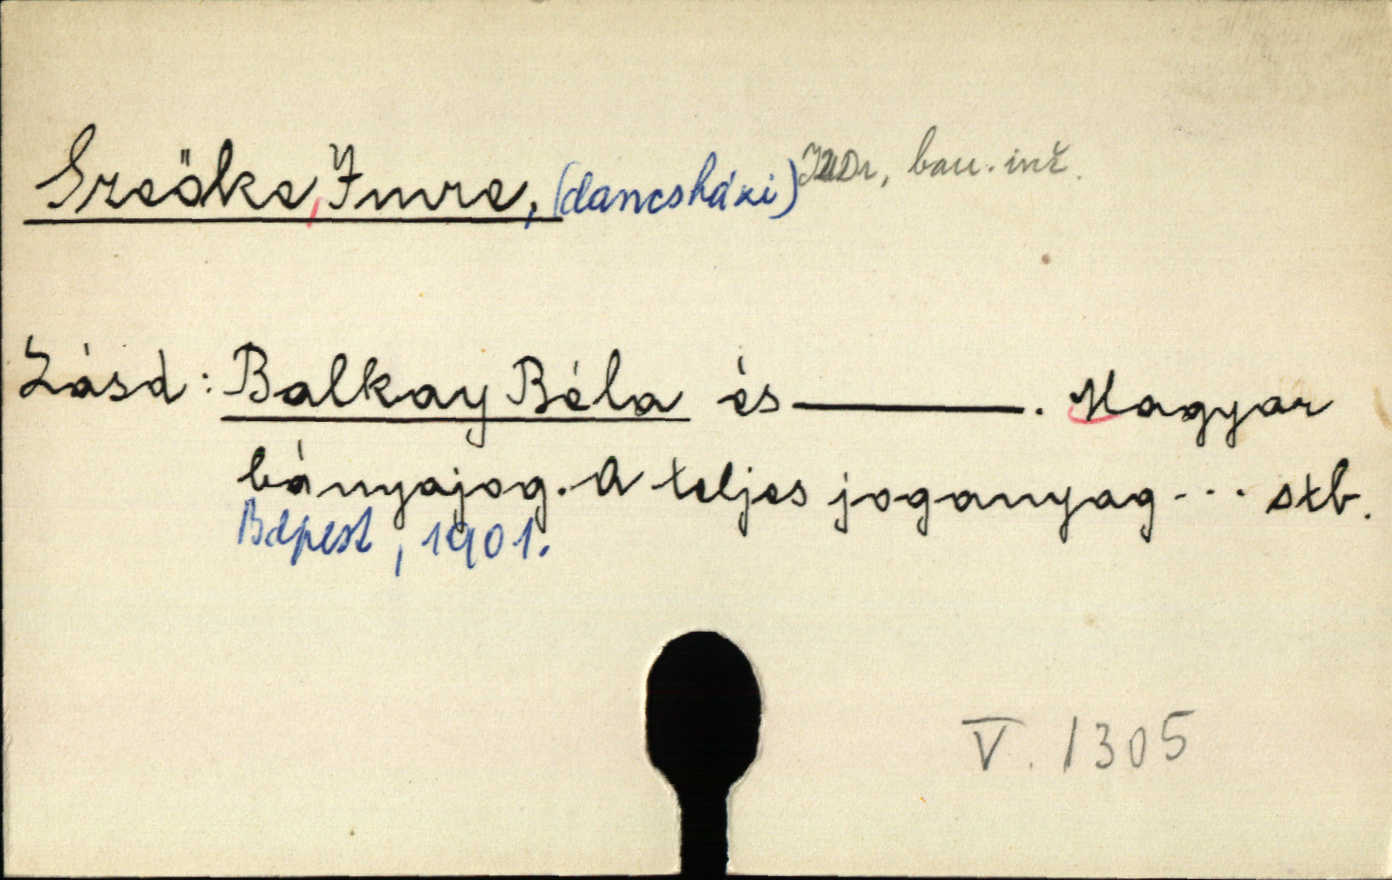 Szeöke, Imre, (dancsházi) JUDr, ban. inž.
Lásd: Balkay Béla és ———. Magyar
bányajog. A teljes joganyag... stb.
Bdpest, 1901.
V. 1305